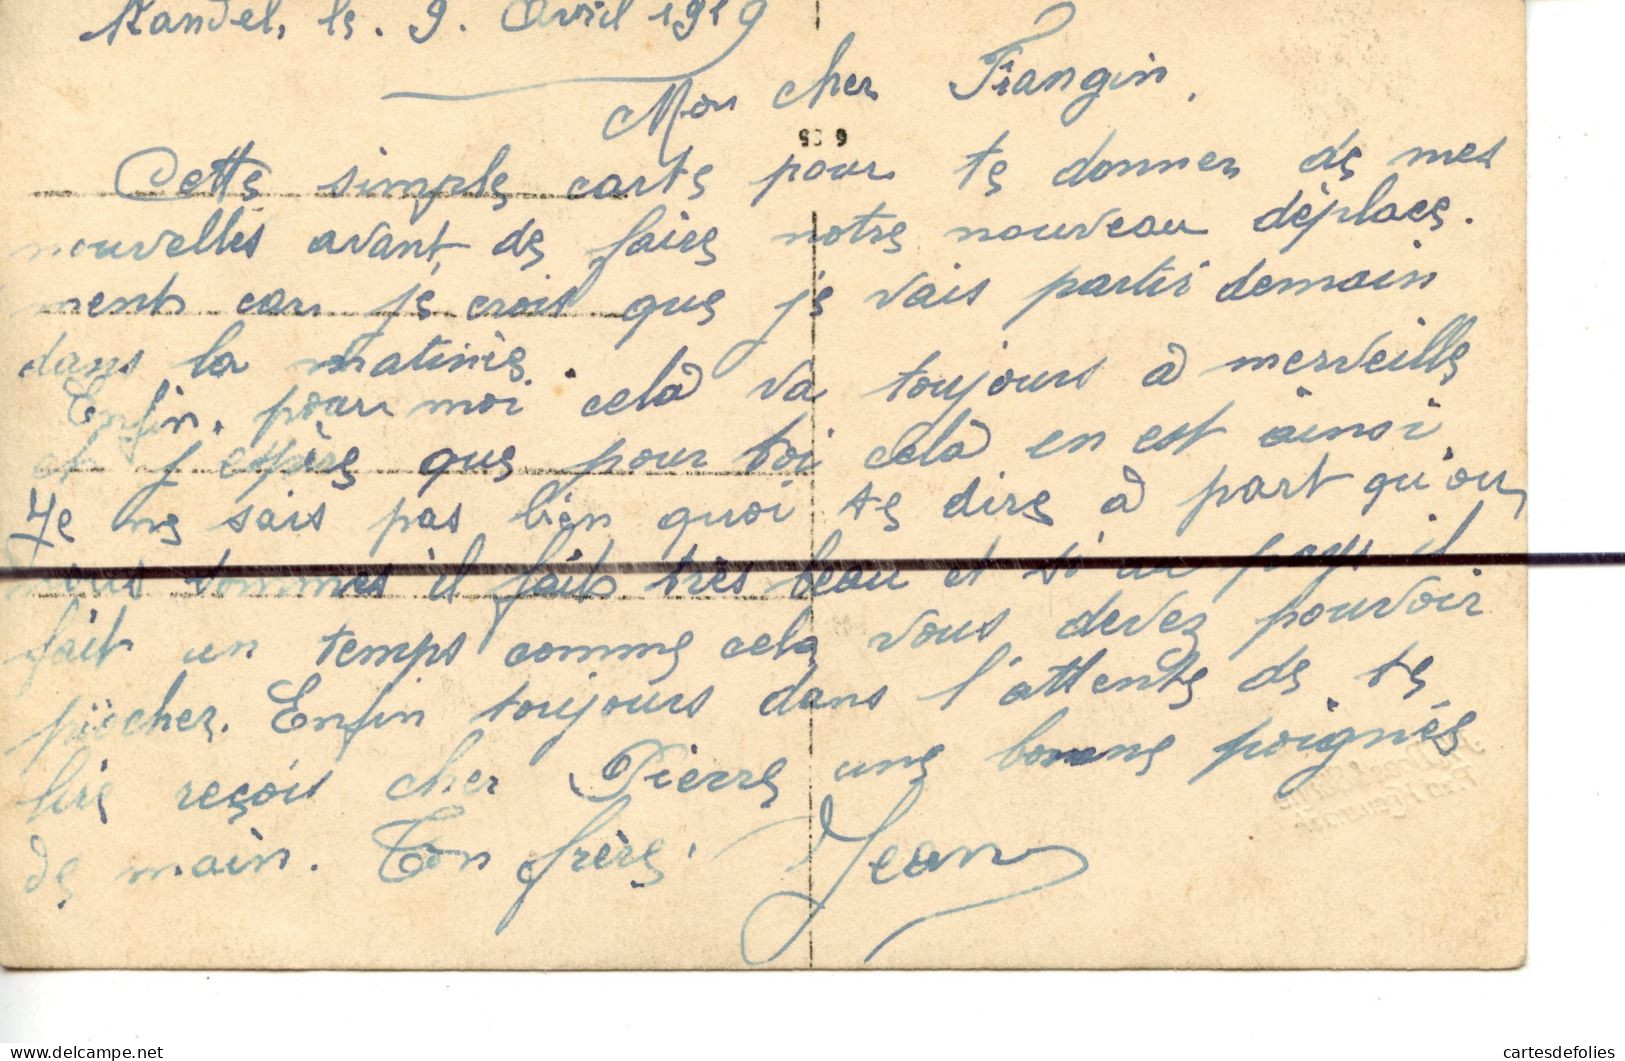 Kandel, le. 9. Avril 1919
Mon cher Frangin,
Cette simple carte pour te donner de mes
nouvelles avant de faire notre nouveau déplace-
ment car je crois que je vais partir demain
dans la matinée.
Enfin, pour moi celà va toujours à merveille
et j'espère que pour toi celà en est ainsi.
Je ne sais pas bien quoi te dire à part qu'ou
nous sommes il fait très beau et si au pays il
fait un temps comme cela vous devez pouvoir
piocher. Enfin toujours dans l'attente de te
lire reçois cher Pierre une bonne poignée
de main. Ton frère. Jean
delcampe.net
cartesdefolies